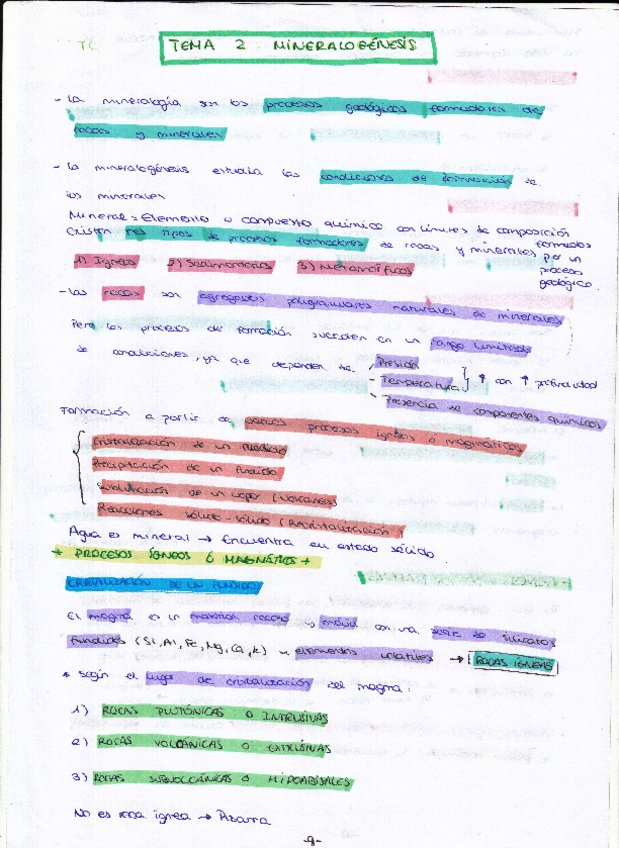 TC
TEMA 2: MINERALOGÉNESIS
- La mineralogía son los procesos geológicos formadores de
rocas y minerales
- La mineralogénesis estudia las condiciones de formación de
los minerales
Mineral = Elemento o compuesto químico con límites de composición
formados
por un
proceso
geológico.
Existen tres tipos de procesos formadores de rocas y minerales
1) Ígneos 2) Sedimentarios 3) Metamórficos
- Las rocas son agregados poligranulares naturales de minerales
Pero los procesos de formación suceden en un rango limitado
de condiciones, ya que dependen de
- Presión
- Temperatura
↑ con ↑ profundidad
- Presencia de componentes químicos
Formación a partir de varios procesos ígneos o magmáticos
Cristalización de un fundido
Precipitación de un fluido
Sublimación de un vapor (Volcanes)
Reacciones sólido-sólido (Recristalización)
Agua es mineral → Encuentra en estado sólido.
* PROCESOS ÍGNEOS Ó MAGMÁTICOS *
CRISTALIZACIÓN DE UN FUNDIDO
El magma es un material rocoso y móvil con una serie de silicatos
fundidos (Si, Al, Fe, Mg, Ca, K) y elementos volátiles → ROCAS ÍGNEAS
* Según el lugar de cristalización del magma:
1) ROCAS PLUTÓNICAS O INTRUSIVAS
2) ROCAS VOLCÁNICAS O EXTRUSIVAS
3) ROCAS SUBVOLCÁNICAS O HIPOABISALES
No es roca ígnea → Pizarra
-9-